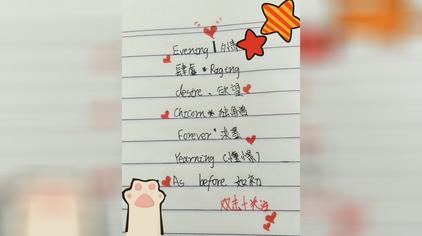 Evening
肆虐 * Raging
desire、欲望
Chicorn * 独角兽
Forever
Yearning (憧憬)
As before 如初
双击+关注